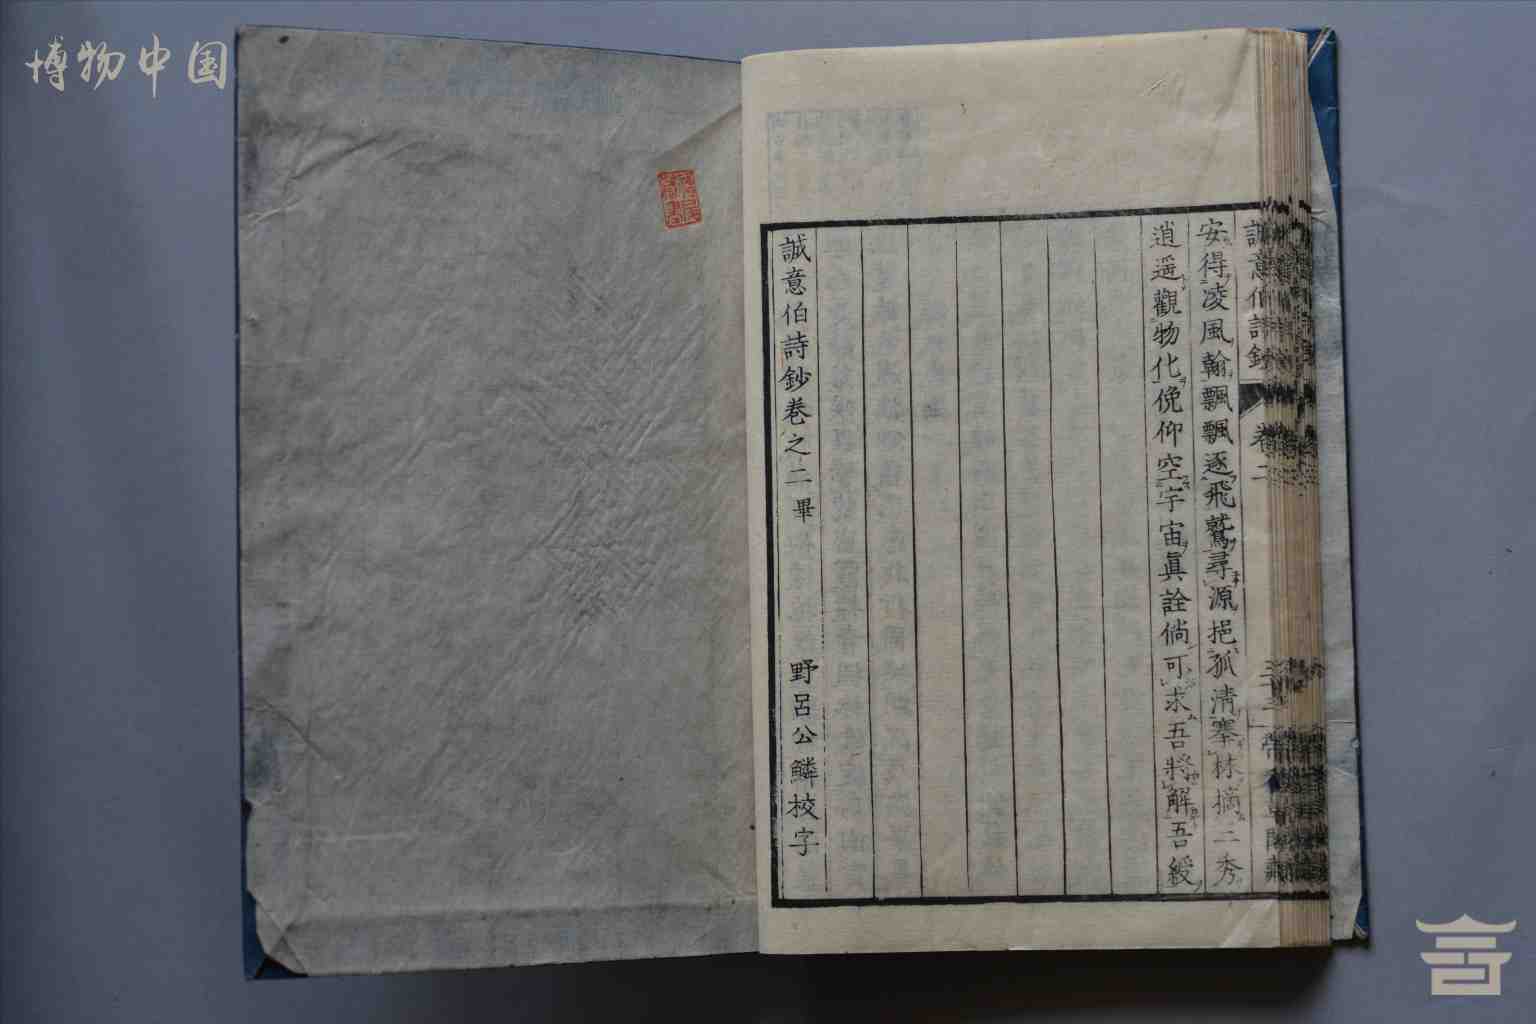 博物中国
誠意伯詩鈔
卷二
安得凌風翰飄飄逐飛鷲尋源挹孤清搴林摘三秀
逍遥觀物化俛仰空宇宙眞詮倘可求吾將解吾綬
誠意伯詩鈔巻之二畢
野呂公鱗校字